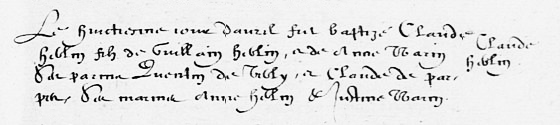 Le huictiesme iour davril fut baptizé Claude
Heblin filz de Guillain Heblin, et de Anne Warin
Ses parins Quentin de Vely, et Claude de par-
Ses marines Anne Heblin et Justine Warin.
Claude
Heblin.